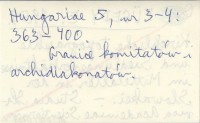 Hungariae 5, nr 3-4:
363-400.
Granice komitatów i
archidiakonatów.